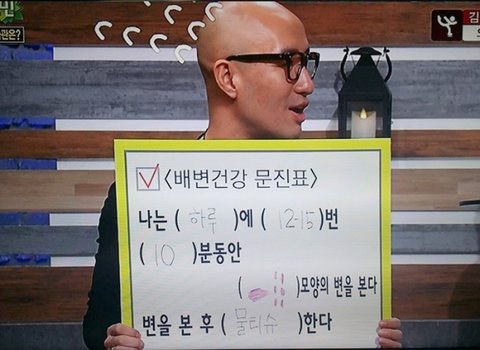 민
관은?
김
☑ <배변건강 문진표>
나는 ( 하루 )에 ( 12-15 )번
( 10 )분동안
( )모양의 변을 본다
변을 본 후 ( 물티슈 )한다